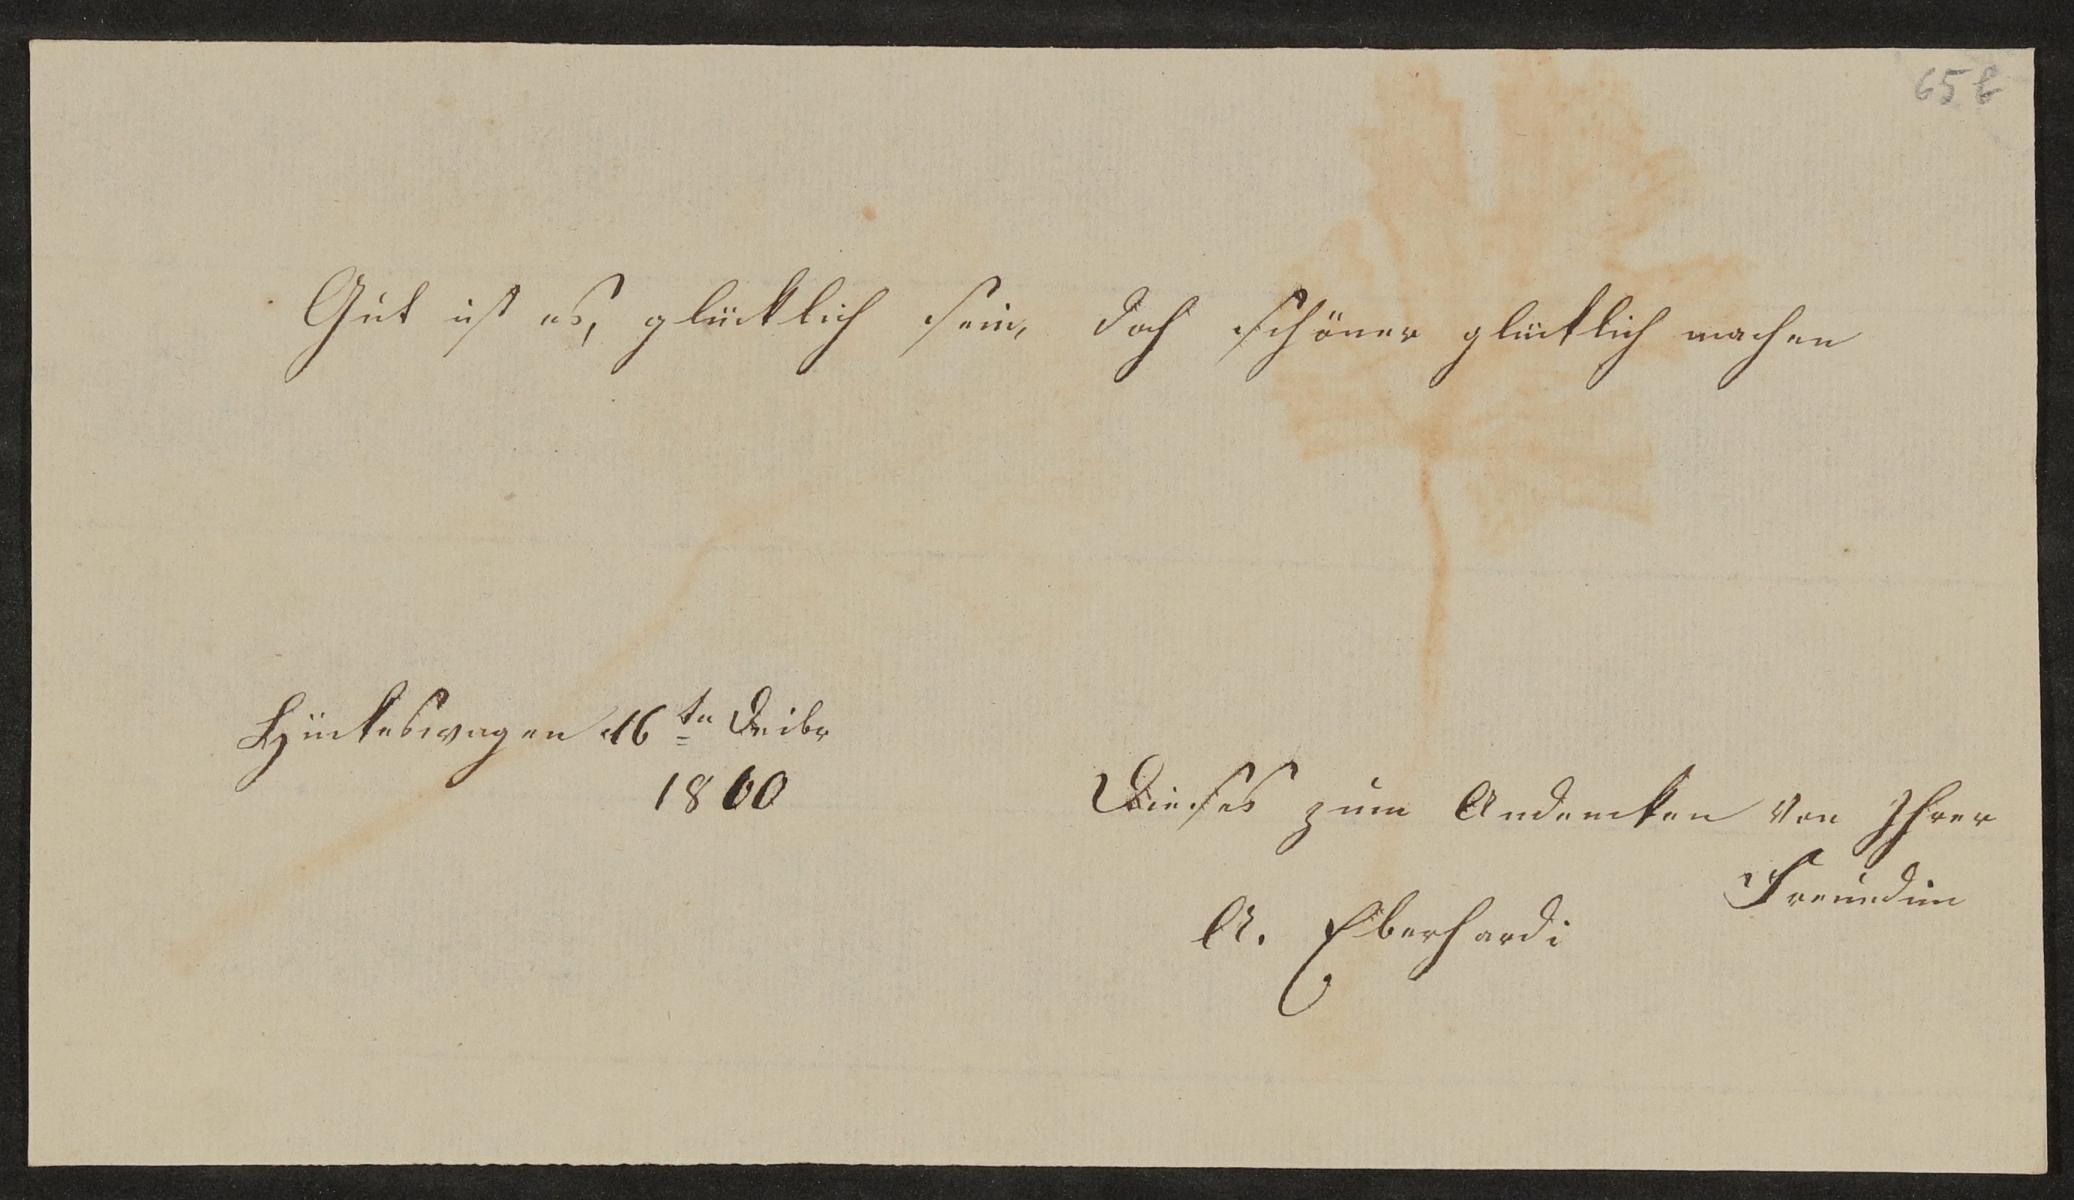 65 b
Gut ist es, glücklich sein, doch schöner glücklich machen
Hückeswagen 16ten
1800
Dieses zum Andencken von Ihrer
Freundin
A. Eberhardi